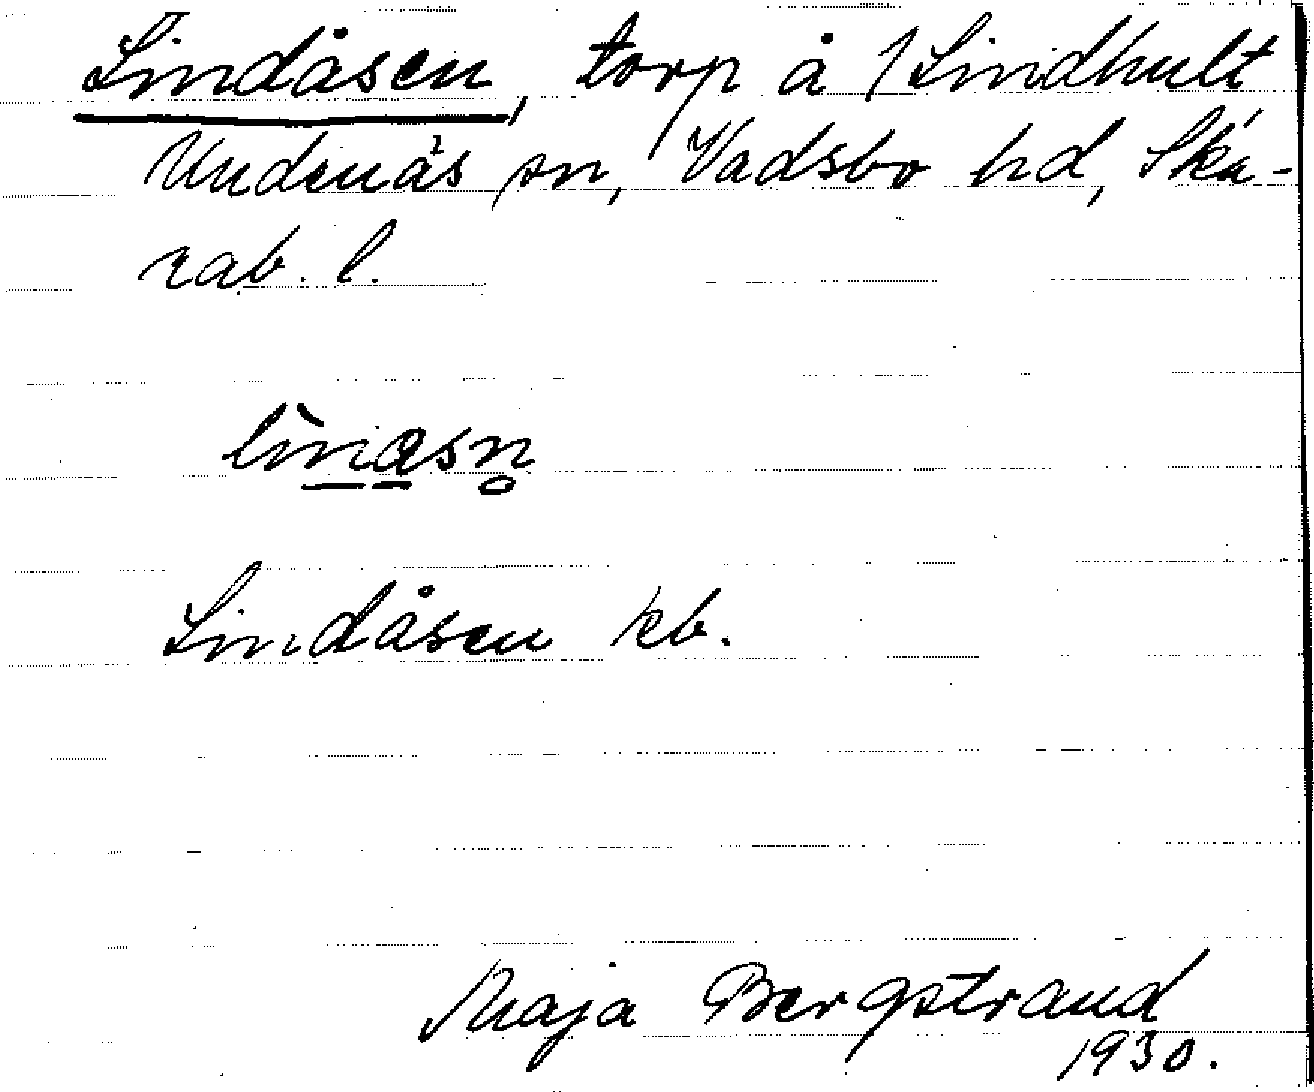 Lindåsen, torp å 1 Lindhult
Undenäs sn, Vadsbo hd, Ska-
rab. l.
lìnasn̥
Lindåsen kb.
Maja Bergstrand
1930.